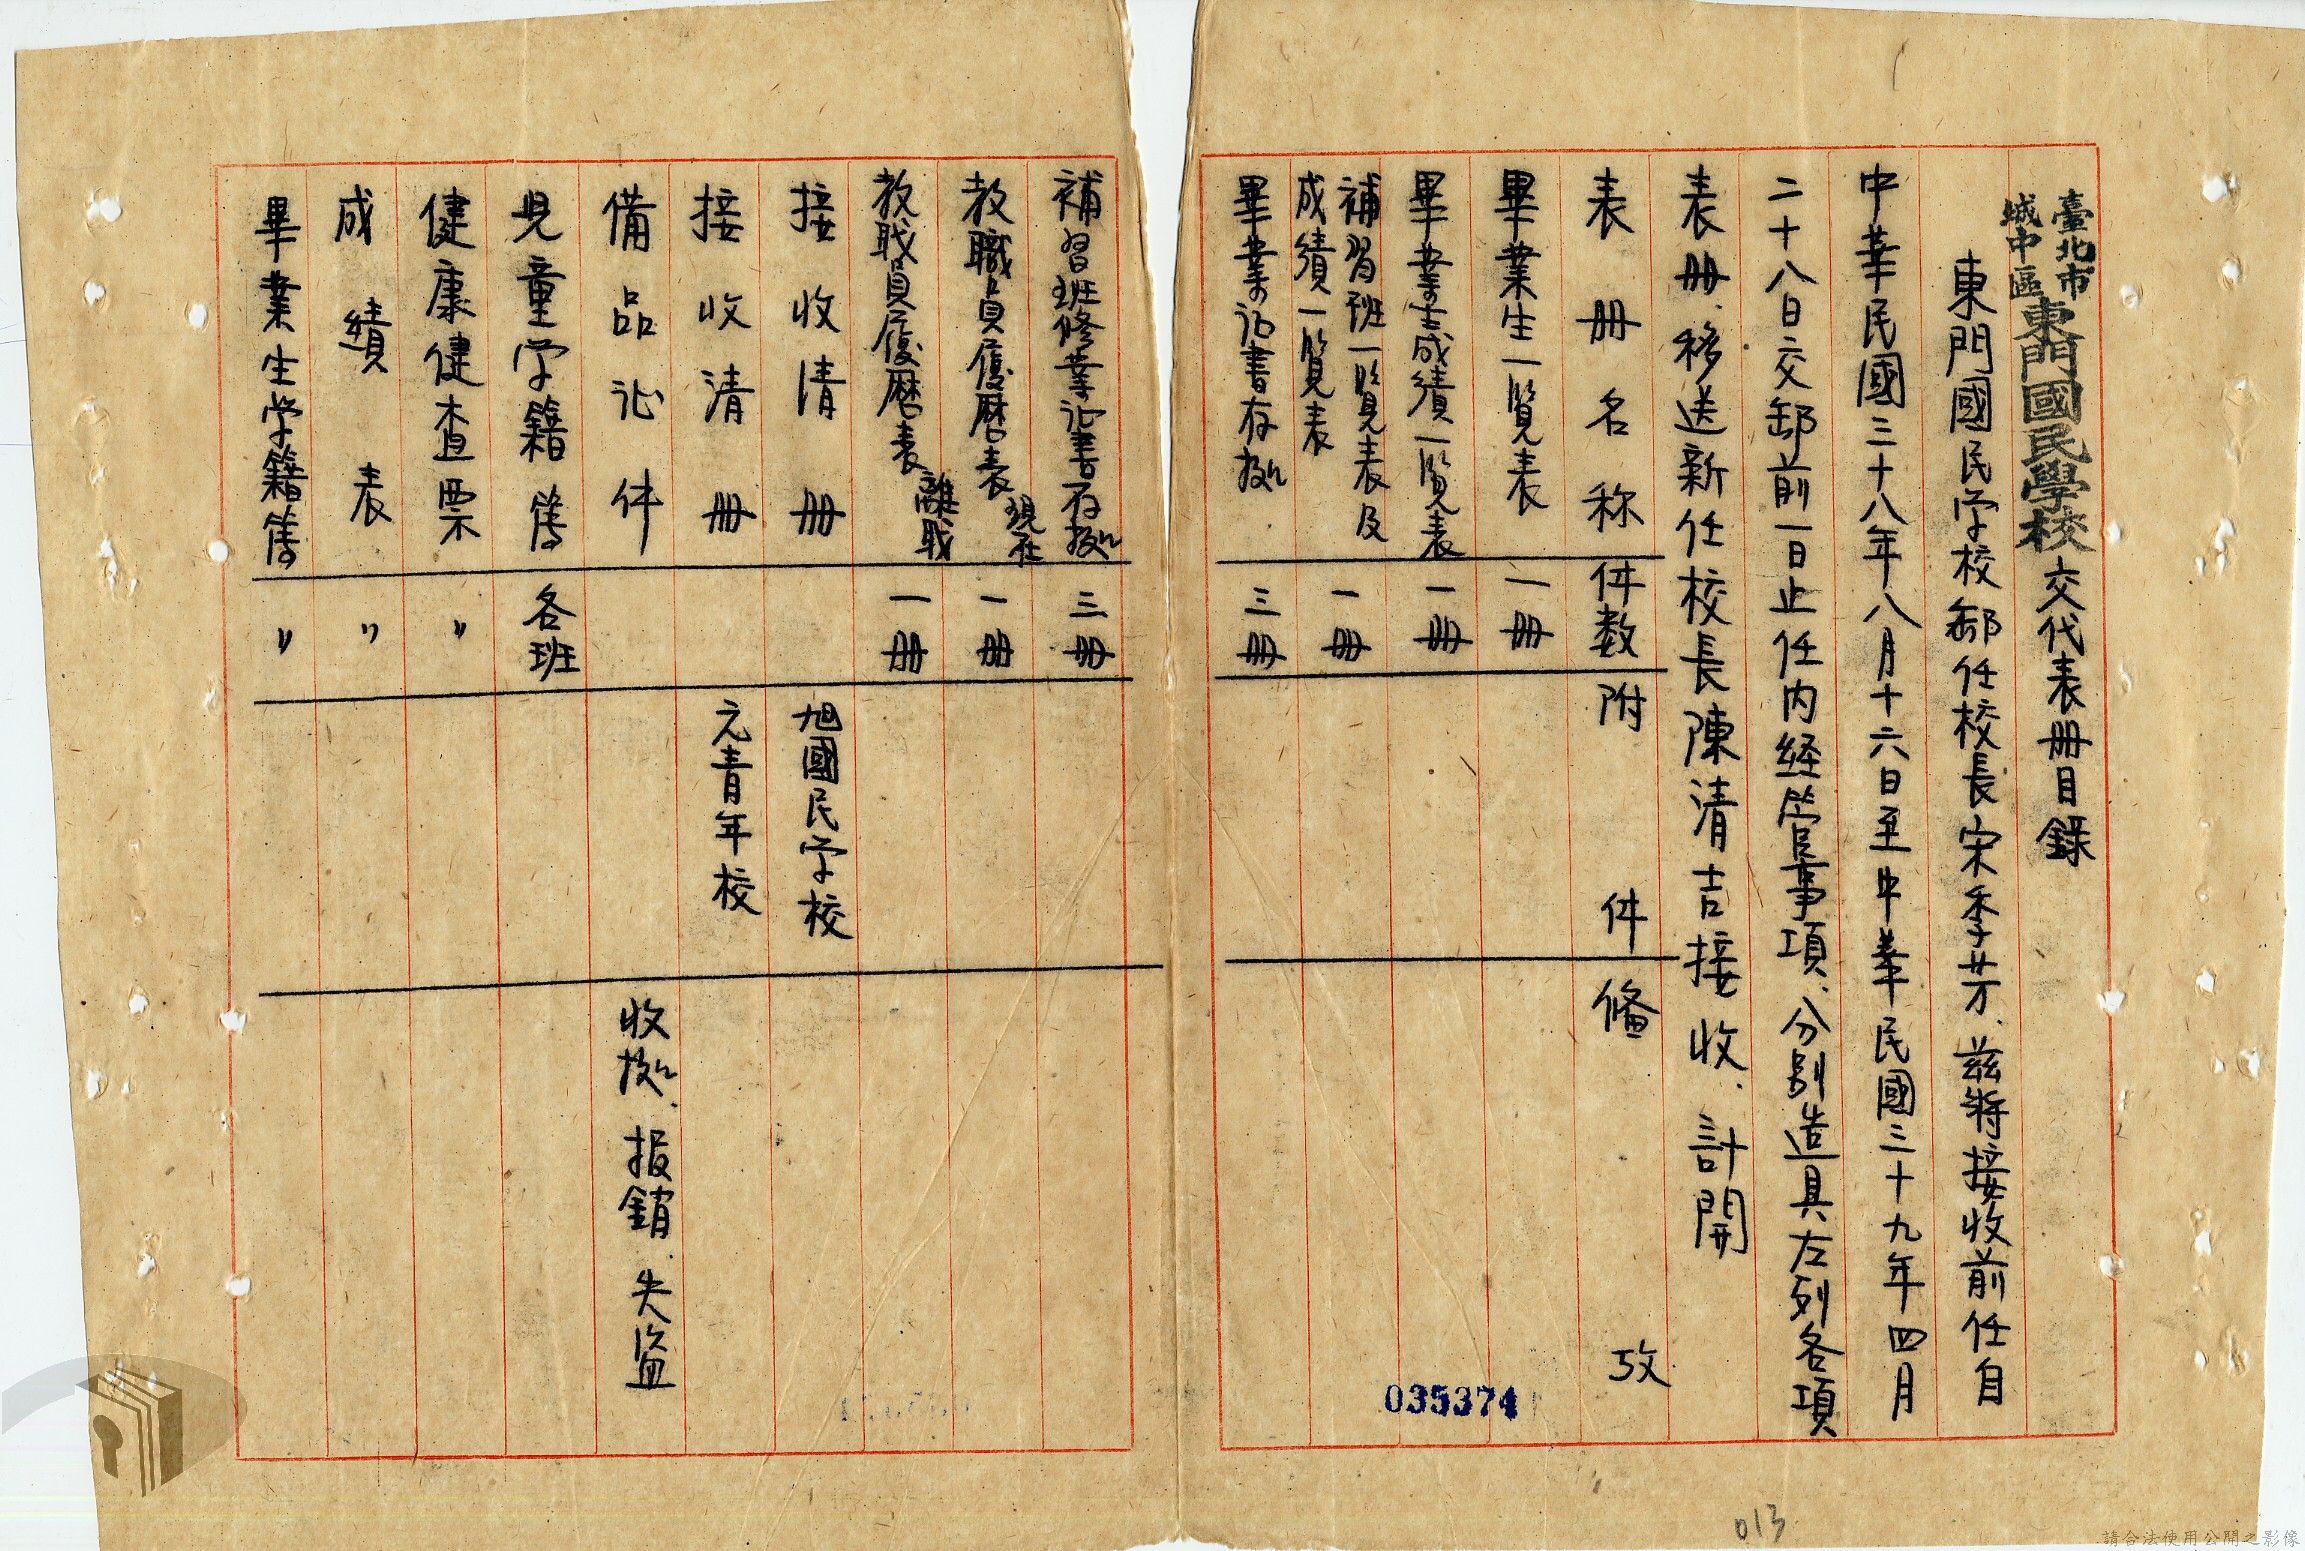 臺北市城中區東門國民學校交代表册目錄
東門國民学校卸任校長宋季芳、茲將接收前任自
中華民國三十八年八月十六日至中華民國三十九年四月
二十八日交卸前一日止任内経管事項、分别造具左列各項
表册、移送新任校長陳清吉接收、計開
表册名称 件数 附件 俻攷
畢業生一覧表 一册
畢業生成績一覧表 一册
補習班一覧表及成績一覧表 一册
畢業証書存拠 三册
補習班修業証書存拠 三册
教職員履歴表 現在 一册
教职員履歴表 離职 一册
接收清册 旭國民学校
接收清册 元青年校
備品証件 收拠、报銷、失盗
児童学籍簿 各班
健康健查票 〃
成績表 〃
畢業生学籍簿 〃
035374
013
請合法使用公開之影像